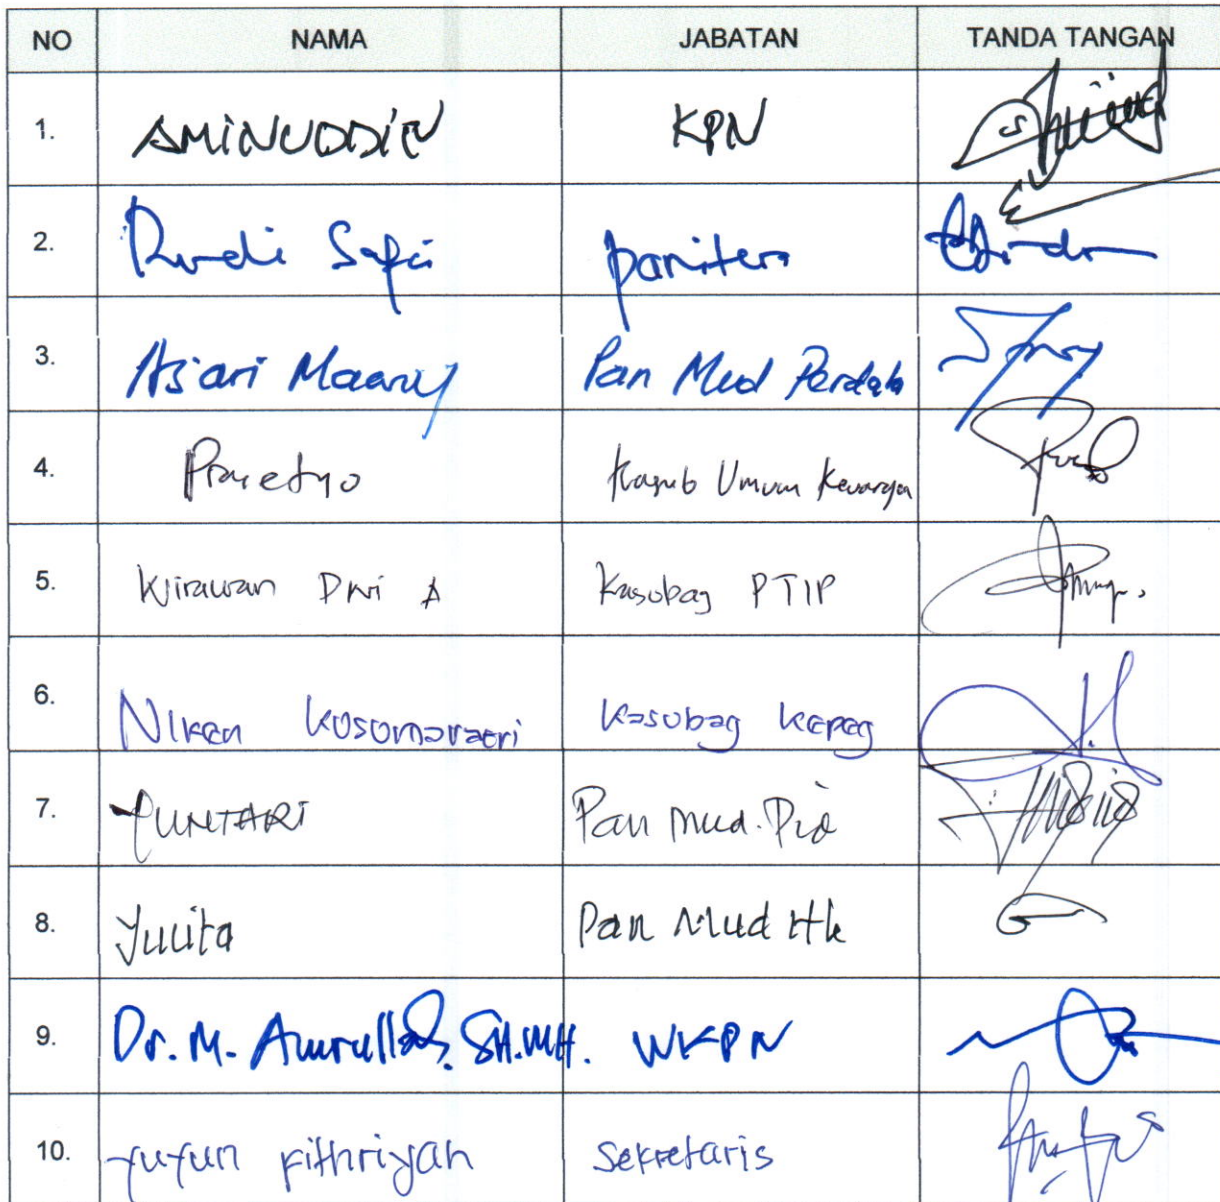 NO NAMA JABATAN TANDA TANGAN
1. AMINUDDIN KPN
2. Rudi Safii panitera
3. Asiari Maaruf Pan Mud Perdata
4. Prasetyo Kasub Umum Keuangan
5. Wirawan Dwi A Kasubag PTIP
6. Niken Kusumawatri Kasubag Kepeg
7. YUNTARI Pan Mud. Pid
8. Yulita Pan Mud Hk
9. Dr. M. Amrullah, SH.MH. WKPN
10. Yuyun Fithriyah Sekretaris